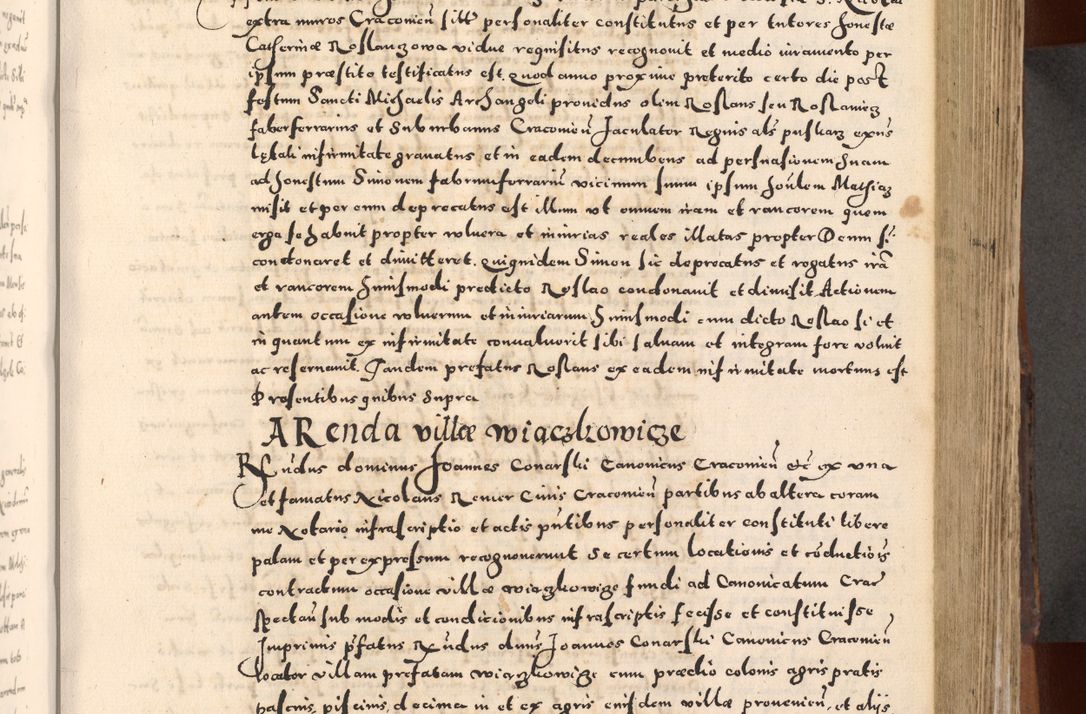 extra muros Cracovien̄ sitt̄ personaliter constitutus et per tutores honestæ
Catherinæ Roslanczowa vidue requisitus recognovit et medio iuramento per
ipsum præstito testificatus est, quod anno proxime preterito certo die post
festum Sancti Michaelis Archangeli providus olim Roslans seu Roslaniecz
faberferrarius et Suburbanus Cracovien̄ Jaculator Regnis als puskarz exn̄s
lethali infirmitate gravatus et in eadem decumbens ad persuasionem suam
ad honestum Simonem fabrumferrariū vicinum suum ipsum hon̄lem Mathiam
misit et per eum deprecatus est illum vt omnem iram et rancorem quem
erga se habuit propter vulnera et iniurias reales illatas propter Deum si
condonaret et dimitteret, Quiquidem Simon sic deprecatus et rogatus irā
et rancorem huiusmodi predicto Roslao condonavit et dimisit Actionem
autem occasione vulnerum et iniuriarum huiusmodi cum dicto Roslao si et
in quantum ex infirmitate convaluerit sibi salvam et integram fore voluit
ac reservavit. Tandem prefatus Roslans ex eadem infirmitate mortuus est
Presentibus quibus supra
ARenda villæ wiączkowicze
Rn̄dus dominus Joannes Conarski Canonicus Cracovien̄ etc̄ ex vna
et famatus Nicolaus Remer Civis Cracovien̄ partibus ab altera coram
me Notario infrascriptio et actis pn̄tibus personaliter constituti libere
palam et per expressum recognoverunt Se certum locationis et cōductiōis
contractum occasione villæ wiączkowicze fundi ad Canonicatum Crac̄
spectan̄ sub modis et condicionibus infrascriptis fecisse et constituisse
Imprimis pfatus Rn̄dus dn̄us Joannes Conarski Canonicus Cracovien̄
locator villam prefatam wiączkowicze cum prædio colonis agris pratis
pascuis, piscinis, decima in et ex agris eiusdem villæ provenien̄, et alijs